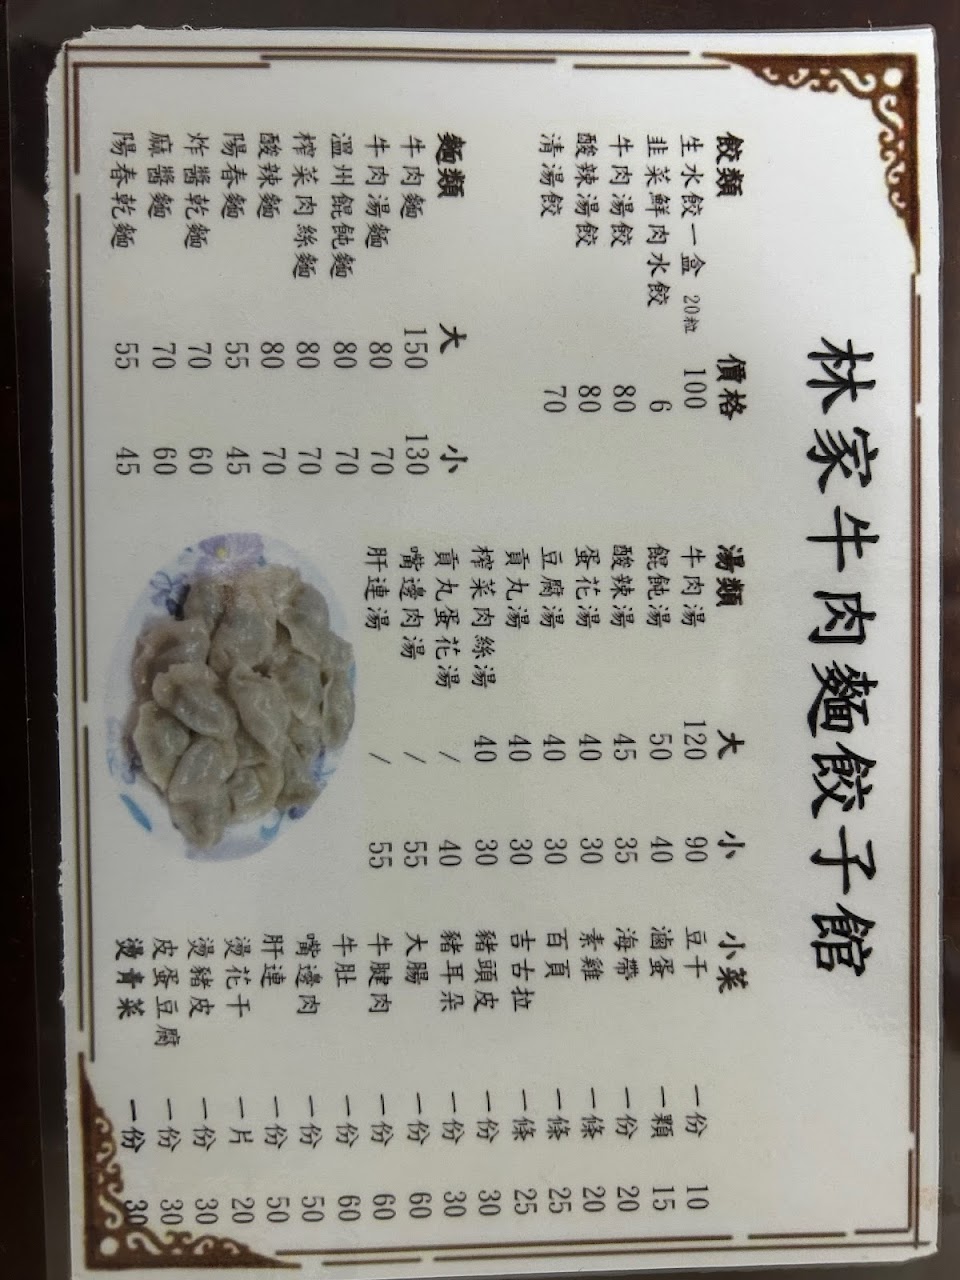 林家牛肉麵餃子館
餃類 價格
生水餃一盒 20粒 100
韭菜鮮肉水餃 6
牛肉湯餃 80
酸辣湯餃 80
清湯餃 70
麵類 大 小
牛肉麵 150 130
牛肉湯麵 80 70
溫州餛飩麵 80 70
榨菜肉絲麵 80 70
酸辣麵 80 70
陽春麵 55 45
炸醬乾麵 70 60
麻醬麵 70 60
陽春乾麵 55 45
湯類 大 小
牛肉湯 120 90
餛飩湯 50 40
酸辣湯 45 35
蛋花湯 40 30
豆腐湯 40 30
貢丸湯 40 30
榨菜肉絲湯 40 30
貢丸蛋花湯 / 40
嘴邊肉湯 / 55
肝連湯 / 55
小菜
豆干 一份 10
滷蛋 一顆 15
海帶 一份 20
素雞 一條 20
百頁 一條 25
古古拉 一條 25
豬頭皮 一份 30
豬耳朵 一份 30
大腸 一份 60
牛腱肉 一份 60
牛肚 一份 60
嘴邊肉 一份 50
肝連 一份 50
燙花干 一片 20
燙豬皮 一份 30
皮蛋豆腐 一份 30
燙青菜 一份 30